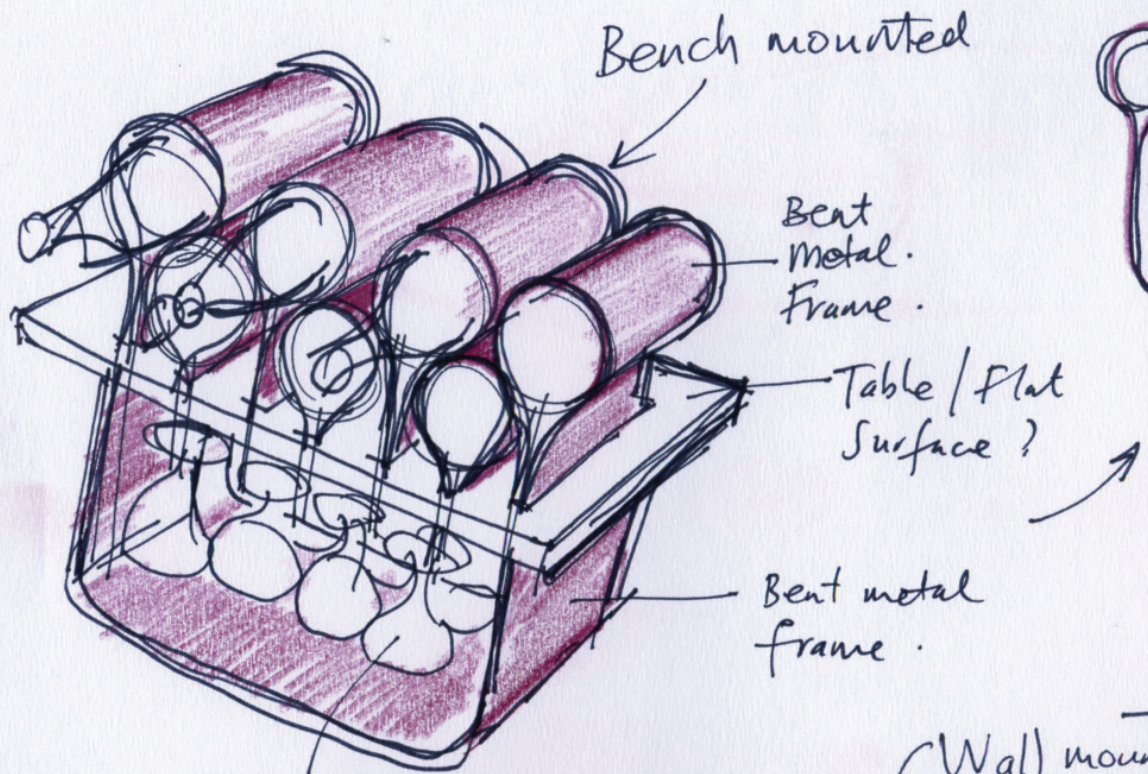 Bench mounted
Bent
metal.
Frame.
Table / Flat
Surface ?
Bent metal
frame.
(Wall